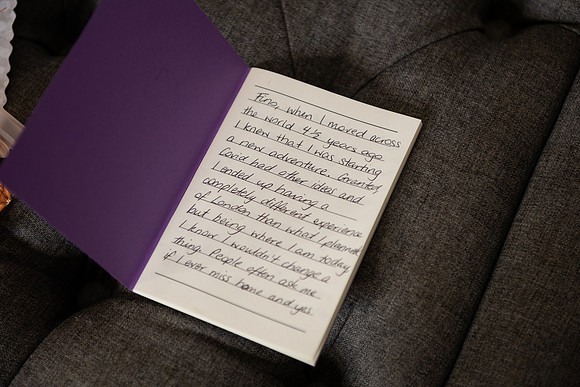 Fino, when I moved across
the world 4 ½ years ago
I knew that I was starting
a new adventure. Granted,
Covid had other ideas and
I ended up having a
completely different experience
of London than what I planned
but being where I am today
I know I wouldn't change a
thing. People often ask me
if I ever miss home and yes